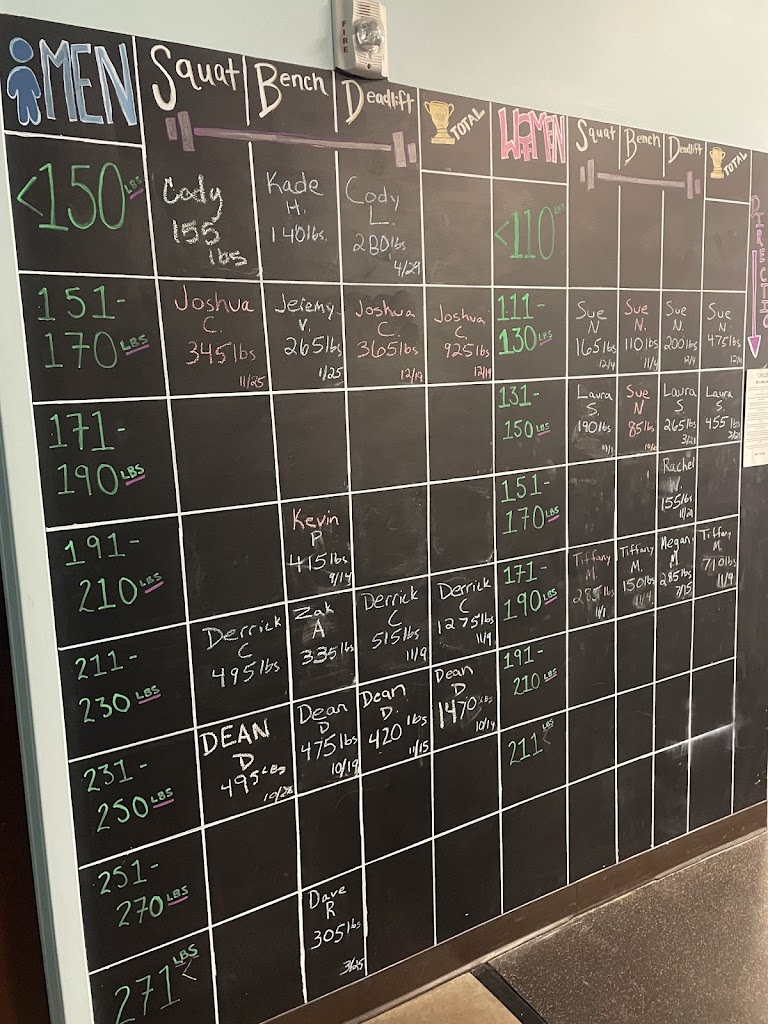 FIRE
MEN
Squat
Bench
Deadlift
TOTAL
WOMEN
Squat
Bench
Deadlift
TOTAL
<150 LBS
Cody
155
lbs
Kade
H.
140lbs
Cody
L.
280lbs
4/29
<110 LBS
151-
170 LBS
Joshua
C.
345lbs
11/25
Jeremy
V.
265lbs
11/25
Joshua
C.
365lbs
12/19
Joshua
C
925lbs
12/19
111-
130 LBS
Sue
N
165lbs
12/4
Sue
N.
110lbs
11/4
Sue
N.
200lbs
12/4
Sue
N
475lbs
171-
190 LBS
131-
150 LBS
Laura
S.
190lbs
Sue
N
85lbs
Laura
S
265lbs
3/21
Laura
S.
455lbs
191-
210 LBS
Kevin
P
415lbs
9/14
151-
170 LBS
Rachel
W.
155lbs
11/21
211-
230 LBS
Derrick
C
495lbs
Zak
A
335lbs
Derrick
C
515lbs
11/9
Derrick
C
1275lbs
11/9
171-
190 LBS
Tiffany
M.
285lbs
11/1
Tiffany
M.
150lbs
11/4
Megan
M
285lbs
7/15
Tiffany
M.
710lbs
11/9
231-
250 LBS
DEAN
D
495 LBS
10/28
Dean
D
475lbs
10/19
Dean
D.
420 lbs
11/15
Dean
D
1470 LBS
10/19
191-
210 LBS
251-
270 LBS
211 LBS <
271 LBS <
Dave
R
305lbs
3/25